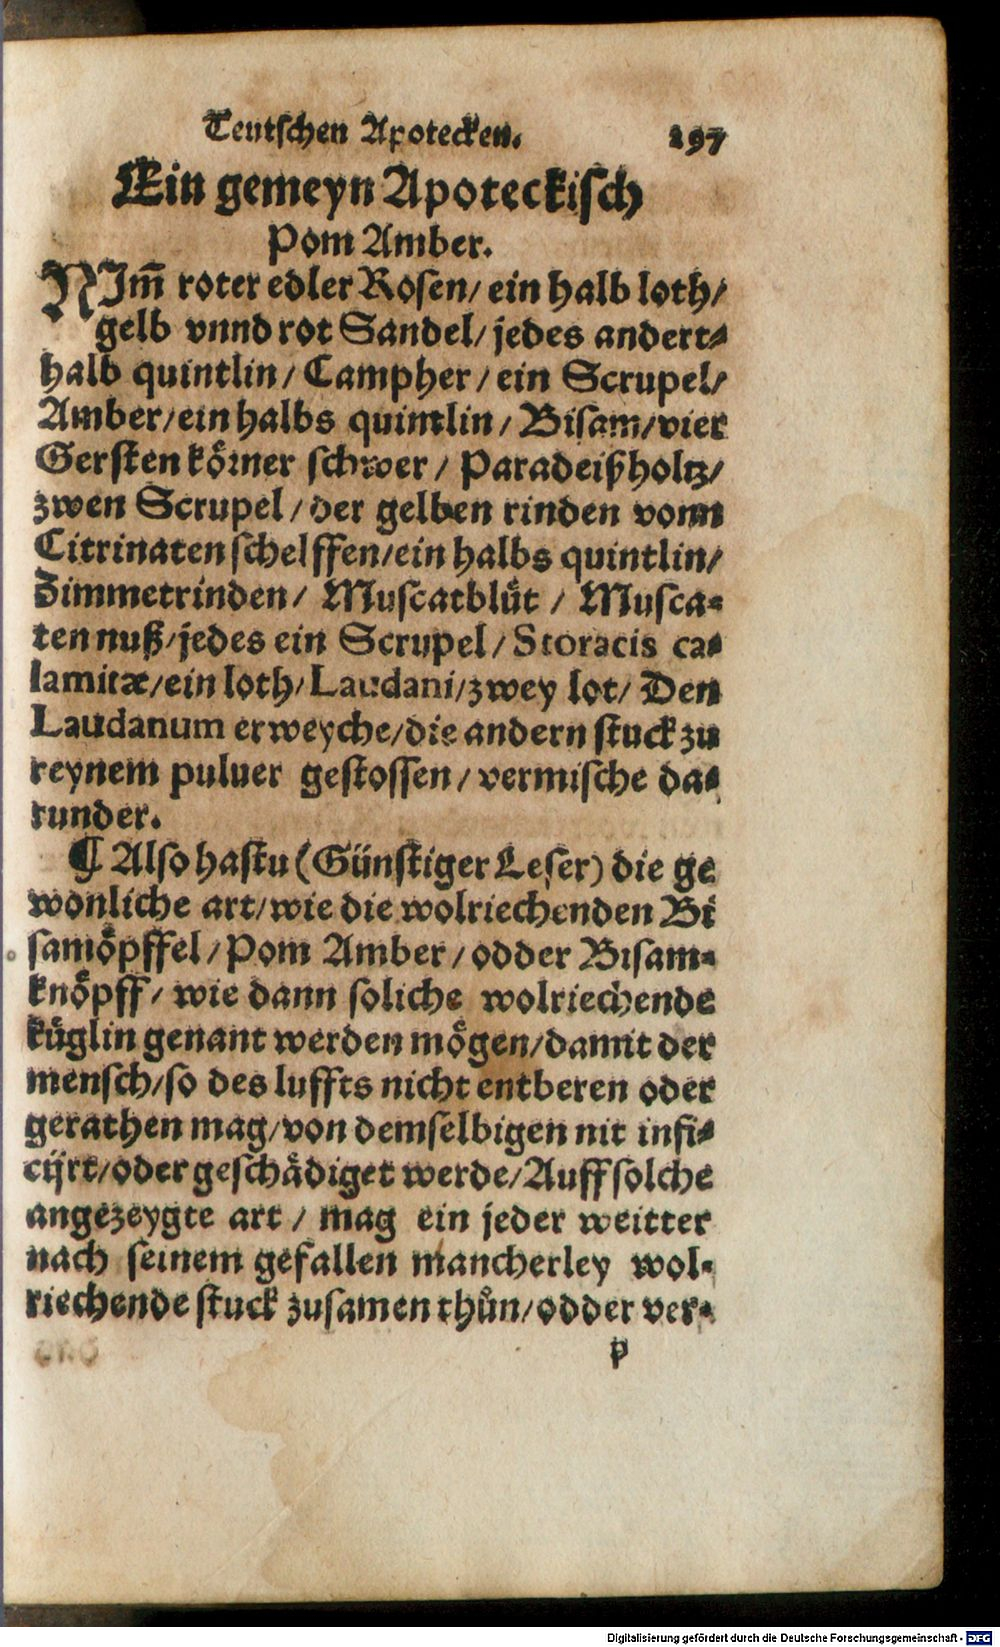 Teutschen Apotecken. 197
Ein gemeyn Apoteckisch
Pom Amber.
NIm̃ roter edler Rosen/ ein halb loth/
gelb vnnd rot Sandel/ jedes andert⸗
halb quintlin/ Campher/ ein Scrupel/
Amber/ein halbs quintlin/ Bisam/vier
Gersten körner schwer/ Paradeißholtz/
zwen Scrupel/ der gelben rinden vonn
Citrinaten schelffen/ein halbs quintlin/
Zimmetrinden/ Muscatblůt/ Musca⸗
ten nuß/jedes ein Scrupel/ Storacis ca⸗
lamitæ/ein loth/ Laudani/zwey lot/ Den
Laudanum erweyche/die andern stuck zu
reynem puluer gestossen/ vermische da⸗
runder.
¶ Also hastu (Günstiger Leser) die ge
wonliche art/wie die wolriechenden Bi
samöpffel/ Pom Amber/ odder Bisam⸗
knöpff/ wie dann soliche wolriechende
kůglin genant werden mögen/damit der
mensch/so des luffts nicht entberen oder
gerathen mag/von demselbigen nit infi⸗
cijrt/oder geschädiget werde/Auff solche
angezeygte art/ mag ein jeder weitter
nach seinem gefallen mancherley wol⸗
riechende stuck zusamen thůn/odder ver⸗
p
Digitalisierung gefördert durch die Deutsche Forschungsgemeinschaft - DFG